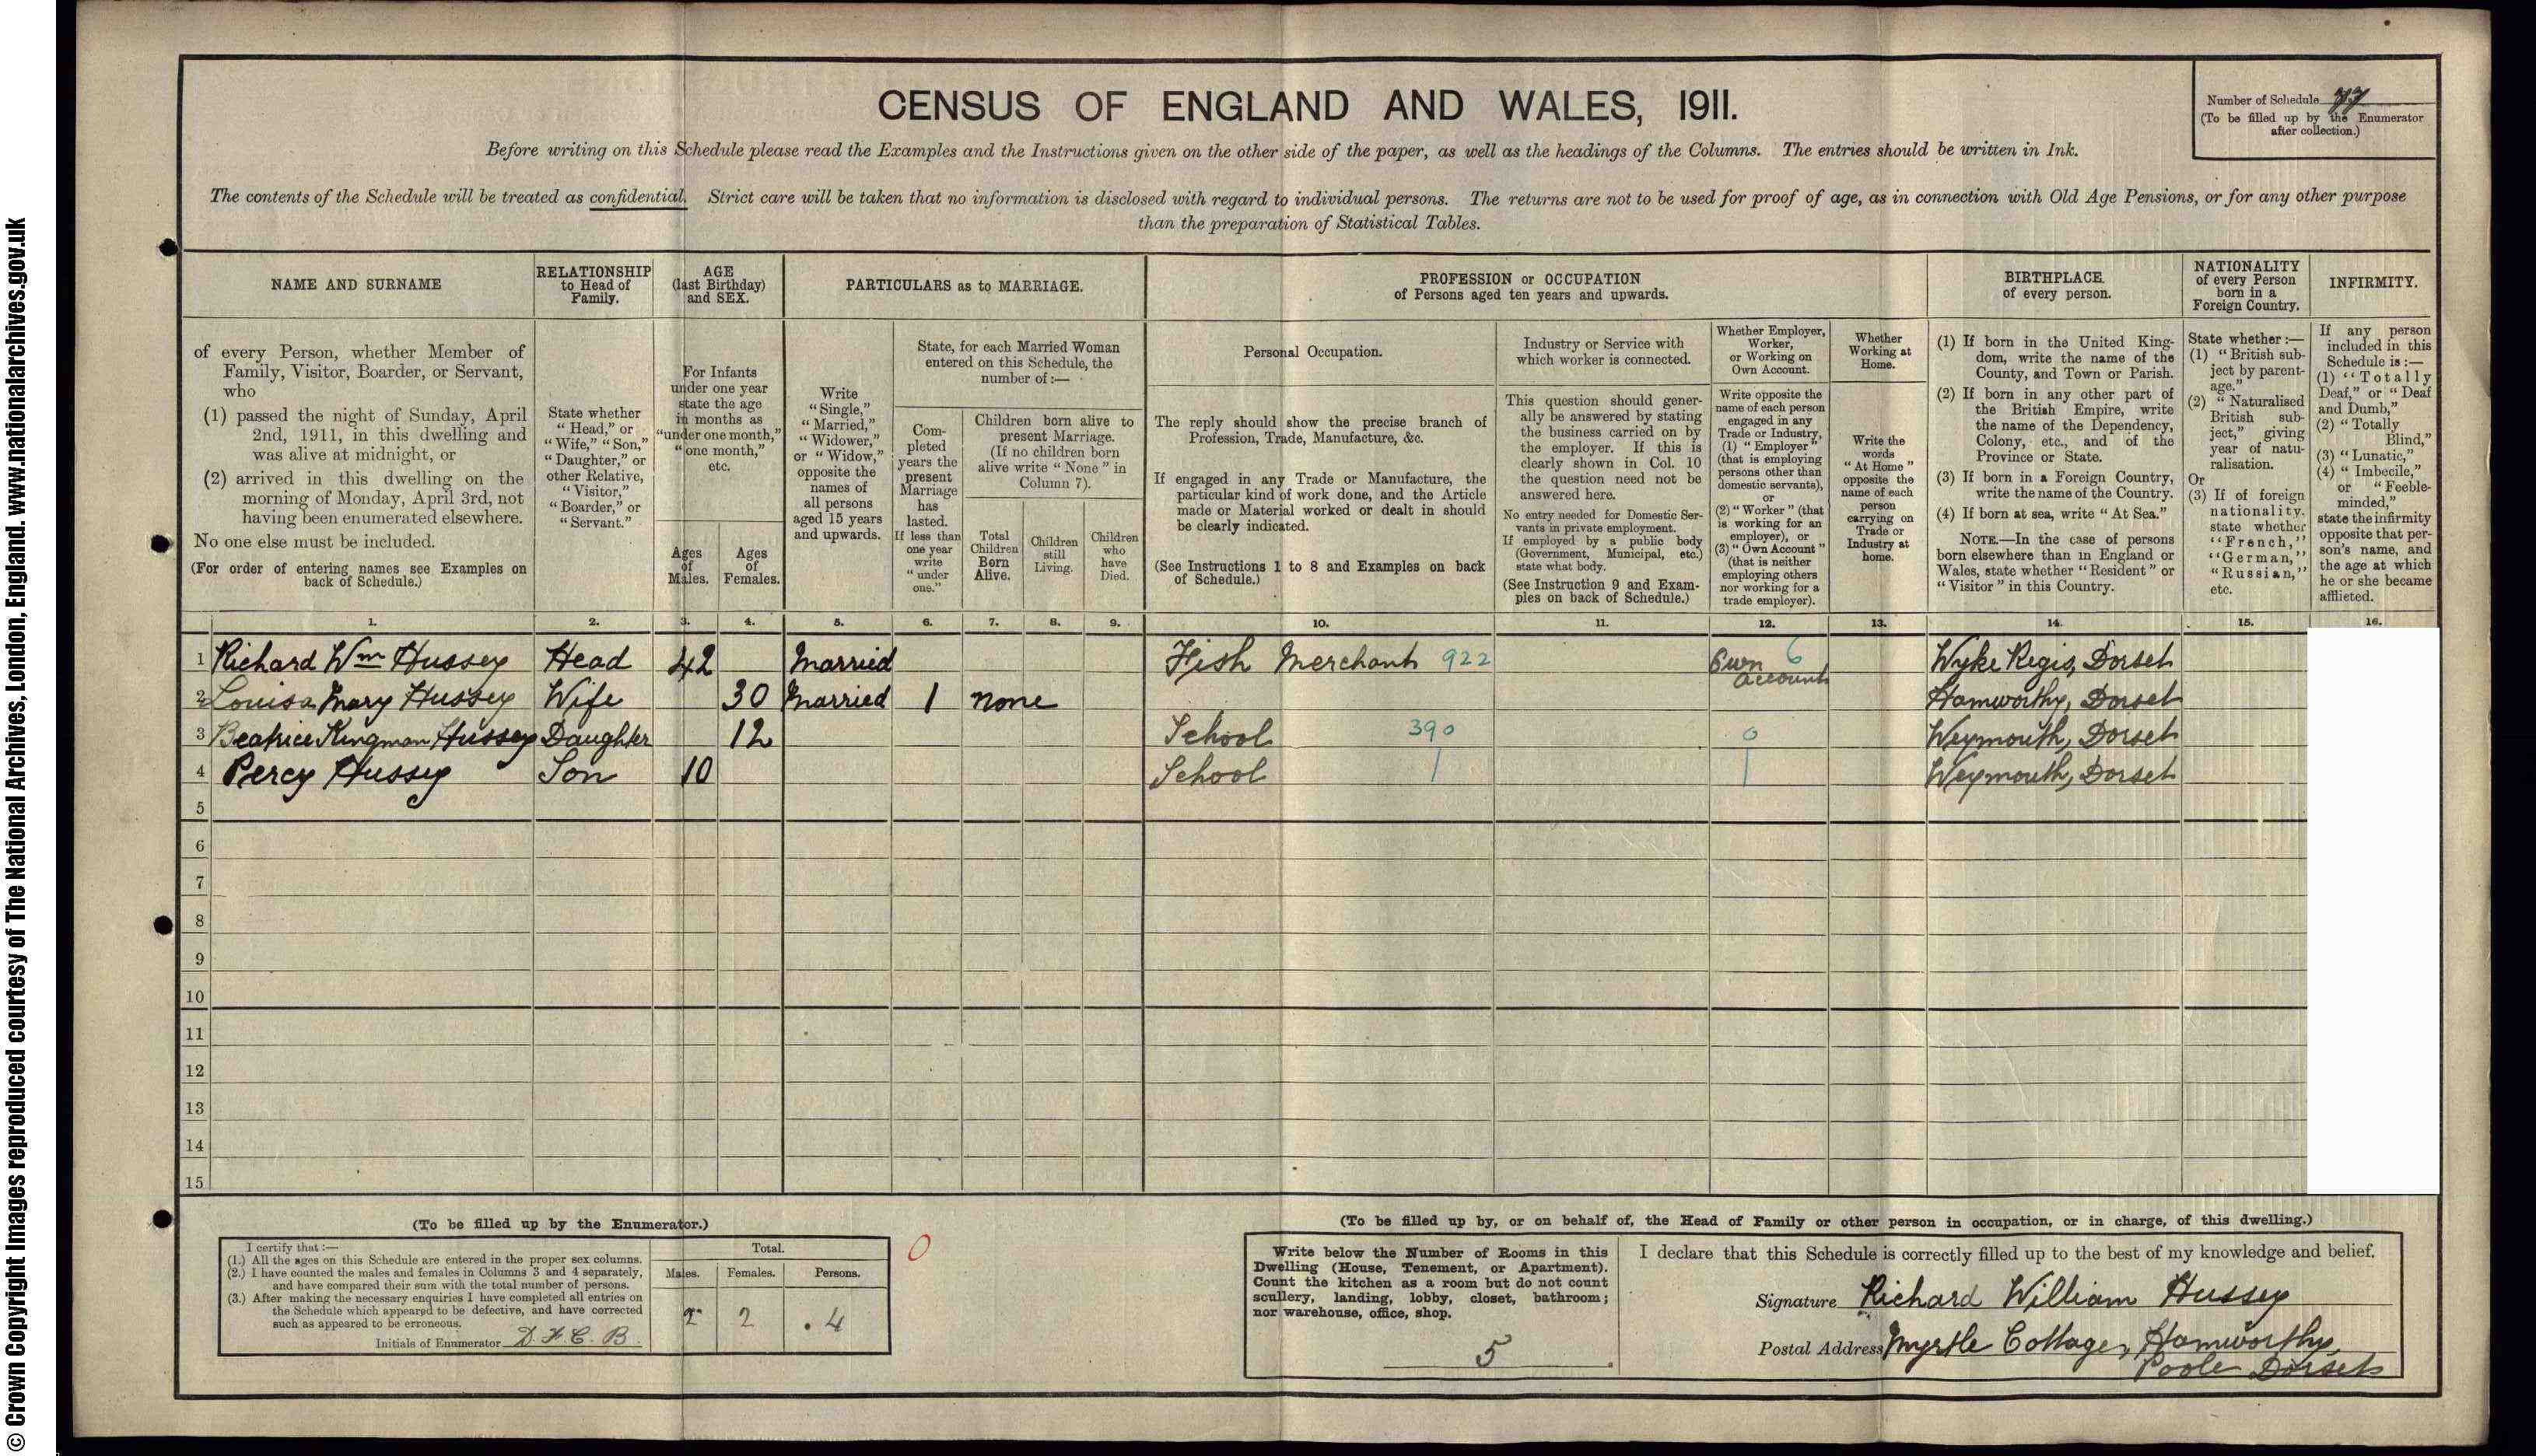 CENSUS OF ENGLAND AND WALES, 1911.
Number of Schedule 77
(To be filled up by the Enumerator
after collection.)
Before writing on this Schedule please read the Examples and the Instructions given on the other side of the paper, as well as the headings of the Columns. The entries should be written in Ink.
The contents of the Schedule will be treated as confidential. Strict care will be taken that no information is disclosed with regard to individual persons. The returns are not to be used for proof of age, as in connection with Old Age Pensions, or for any other purpose
than the preparation of Statistical Tables.
NAME AND SURNAME
RELATIONSHIP
to Head of
Family.
AGE
(last Birthday)
and SEX.
PARTICULARS as to MARRIAGE.
PROFESSION or OCCUPATION
of Persons aged ten years and upwards.
BIRTHPLACE
of every person.
NATIONALITY
of every Person
born in a
Foreign Country.
INFIRMITY.
of every Person, whether Member of
Family, Visitor, Boarder, or Servant,
who
(1) passed the night of Sunday, April
2nd, 1911, in this dwelling and
was alive at midnight, or
(2) arrived in this dwelling on the
morning of Monday, April 3rd, not
having been enumerated elsewhere.
No one else must be included.
(For order of entering names see Examples on
back of Schedule.)
State whether
“Head,” or
“Wife,” “Son,”
“Daughter,” or
other Relative,
“Visitor,”
“Boarder,” or
“Servant.”
For Infants
under one year
state the age
in months as
“under one month,”
“one month,”
etc.
Ages
of
Males.
Ages
of
Females.
Write
“Single,”
“Married,”
“Widower,”
or “Widow,”
opposite the
names of
all persons
aged 15 years
and upwards.
State, for each Married Woman
entered on this Schedule, the
number of :—
Com-
pleted
years the
present
Marriage
has
lasted.
If less than
one year
write
“under
one.”
Children born alive to
present Marriage.
(If no children born
alive write “None” in
Column 7).
Total
Children
Born
Alive.
Children
still
Living.
Children
who
have
Died.
Personal Occupation.
The reply should show the precise branch of
Profession, Trade, Manufacture, &c.
If engaged in any Trade or Manufacture, the
particular kind of work done, and the Article
made or Material worked or dealt in should
be clearly indicated.
(See Instructions 1 to 8 and Examples on back
of Schedule.)
Industry or Service with
which worker is connected.
This question should gener-
ally be answered by stating
the business carried on by
the employer. If this is
clearly shown in Col. 10
the question need not be
answered here.
No entry needed for Domestic Ser-
vants in private employment.
If employed by a public body
(Government, Municipal, etc.)
state what body.
(See Instruction 9 and Exam-
ples on back of Schedule.)
Whether Employer,
Worker,
or Working on
Own Account.
Write opposite the
name of each person
engaged in any
Trade or Industry,
(1) “Employer”
(that is employing
persons other than
domestic servants),
or
(2) “Worker” (that
is working for an
employer), or
(3) “Own Account”
(that is neither
employing others
nor working for a
trade employer).
Whether
Working at
Home.
Write the
words
“At Home”
opposite the
name of each
person
carrying on
Trade or
Industry at
home.
(1) If born in the United King-
dom, write the name of the
County, and Town or Parish.
(2) If born in any other part of
the British Empire, write
the name of the Dependency,
Colony, etc., and of the
Province or State.
(3) If born in a Foreign Country,
write the name of the Country.
(4) If born at sea, write “At Sea.”
NOTE.—In the case of persons
born elsewhere than in England or
Wales, state whether “Resident” or
“Visitor” in this Country.
State whether :—
(1) “British sub-
ject by parent-
age.”
(2) “Naturalised
British sub-
ject,” giving
year of natu-
ralisation.
Or
(3) If of foreign
nationality,
state whether
“French,”
“German,”
“Russian,”
etc.
If any person
included in this
Schedule is :—
(1) “Totally
Deaf,” or “Deaf
and Dumb,”
(2) “Totally
Blind,”
(3) “Lunatic,”
(4) “Imbecile,”
or “Feeble-
minded,”
state the infirmity
opposite that per-
son’s name, and
the age at which
he or she became
afflicted.
1. 2. 3. 4. 5. 6. 7. 8. 9. 10. 11. 12. 13. 14. 15. 16.
1 Richard Wm Hussey Head 42 Married Fish Merchant 922 Own Account 6 Wyke Regis, Dorset
2 Louisa Mary Hussey Wife 30 Married 1 none Hamworthy, Dorset
3 Beatrice Kingman Hussey Daughter 12 School 390 0 Weymouth, Dorset
4 Percy Hussey Son 10 School Weymouth, Dorset
5
6
7
8
9
10
11
12
13
14
15
(To be filled up by the Enumerator.)
I certify that :—
(1.) All the ages on this Schedule are entered in the proper sex columns.
(2.) I have counted the males and females in Columns 3 and 4 separately,
and have compared their sum with the total number of persons.
(3.) After making the necessary enquiries I have completed all entries on
the Schedule which appeared to be defective, and have corrected
such as appeared to be erroneous.
Initials of Enumerator D.F.C.B.
Total.
Males. Females. Persons.
2 2 4
0
(To be filled up by, or on behalf of, the Head of Family or other person in occupation, or in charge, of this dwelling.)
Write below the Number of Rooms in this
Dwelling (House, Tenement, or Apartment).
Count the kitchen as a room but do not count
scullery, landing, lobby, closet, bathroom;
nor warehouse, office, shop.
5
I declare that this Schedule is correctly filled up to the best of my knowledge and belief.
Signature Richard William Hussey
Postal Address Myrtle Cottage, Hamworthy,
Poole Dorset
© Crown Copyright Images reproduced courtesy of The National Archives, London, England. www.nationalarchives.gov.uk